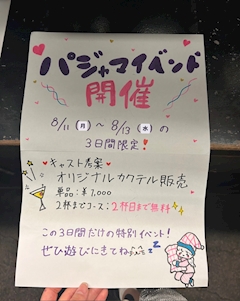 パジャマイベント
開催
8/11(月)～8/13(水)の
3日間限定!
キャスト考案
オリジナルカクテル販売
単品：¥1,000
2杯までコース：2杯目まで無料
この3日間だけの特別イベント!
ぜひ遊びにきてね